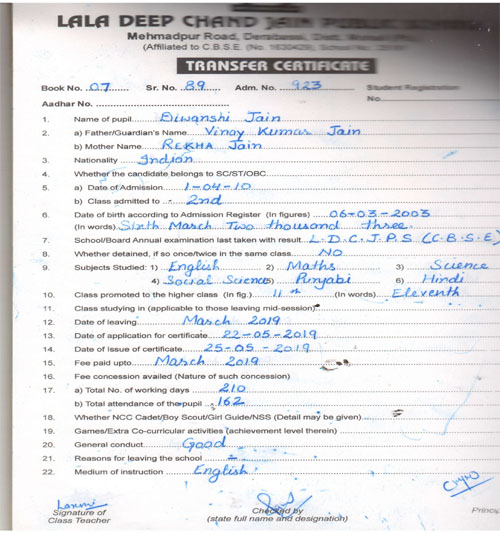 LALA DEEP CHAND JAIN PUBLIC
Mehmadpur Road, Derabassi, Distt.
(Affiliated to C.B.S.E. (No. 1630429), School No.
TRANSFER CERTIFICATE
Book No. 07 Sr. No. 89 Adm. No. 923 Student Registration
Aadhar No. No.
1. Name of pupil Diwanshi Jain
2. a) Father/Guardian's Name Vinay Kumar Jain
b) Mother Name REKHA Jain
3. Nationality Indian
4. Whether the candidate belongs to SC/ST/OBC
5. a) Date of Admission 1-04-10
b) Class admitted to 2nd
6. Date of birth according to Admission Register (In figures) 06-03-2003
(In words) Sixth March Two thousand three
7. School/Board Annual examination last taken with result L.D.C.J.P.S (C.B.S.E)
8. Whether detained, if so once/twice in the same class NO
9. Subjects Studied: 1) English 2) Maths 3) Science
4) Social Science 5) Punjabi 6) Hindi
10. Class promoted to the higher class (In fig.) 11th (In words) Eleventh
11. Class studying in (applicable to those leaving mid-session)
12. Date of leaving March 2019
13. Date of application for certificate 22-05-2019
14. Date of issue of certificate 25-05-2019
15. Fee paid upto March 2019
16. Fee concession availed (Nature of such concession)
17. a) Total No. of working days 210
b) Total attendance of the pupil 162
18. Whether NCC Cadet/Boy Scout/Girl Guide/NSS (Detail may be given)
19. Games/Extra Co-curricular activities (achievement level therein)
20. General conduct Good
21. Reasons for leaving the school
22. Medium of instruction English
Laxmi
Signature of Checked by
Class Teacher (state full name and designation) Princip